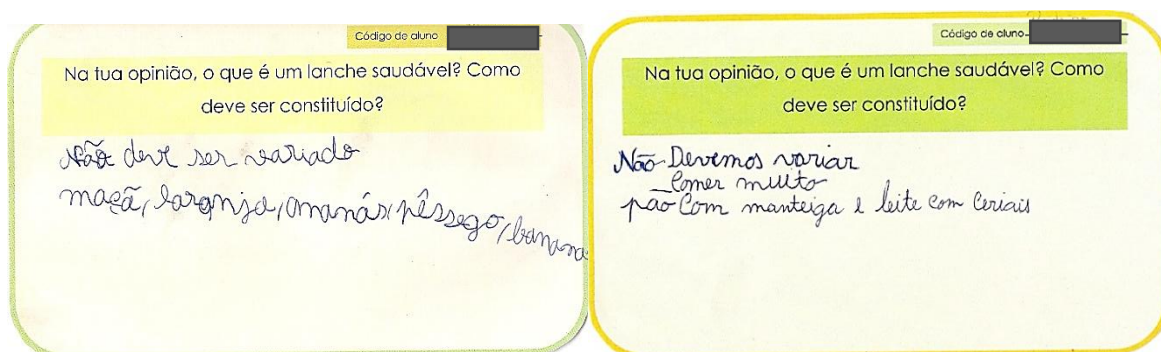 Código de aluno
Na tua opinião, o que é um lanche saudável? Como
deve ser constituído?
Não deve ser variado
maçã, laranja, ananás, pêssego, banana
Código de aluno
Na tua opinião, o que é um lanche saudável? Como
deve ser constituído?
Não Devemos variar
Comer muito
pão Com manteiga e leite com Ceriais